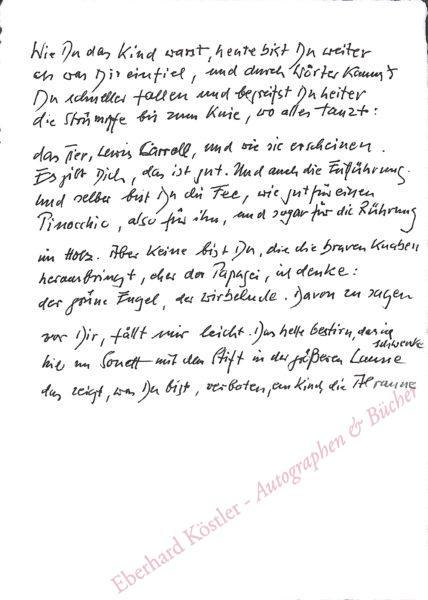 Wie Du das Kind warst, heute bist Du weiter
als was Dir einfiel, und durch Wörter kannst
Du schneller fallen und begreifst Du heiter
die Strümpfe bis zum Knie, wo alles tanzt:
das Tier, Lewis Carroll, und wie sie erscheinen.
Es gibt Dich, das ist gut. Und auch die Entführung.
Und selber bist Du die Fee, wie gut für einen
Pinocchio, also für ihn, und sogar für die Rührung
im Holz. Aber keine bist Du, die die braven Knaben
herausbringt, eher der Papagei, ich denke:
der grüne Engel, der wirbelnde. Davon zu sagen
vor Dir, fällt mir leicht. Das helle
schwenke
wie im Sonett mit dem Stift in der größeren Laune
das zeigt, was Du bist, verboten, ein Kind, die Alraune
Eberhard Köstler - Autographen & Bücher